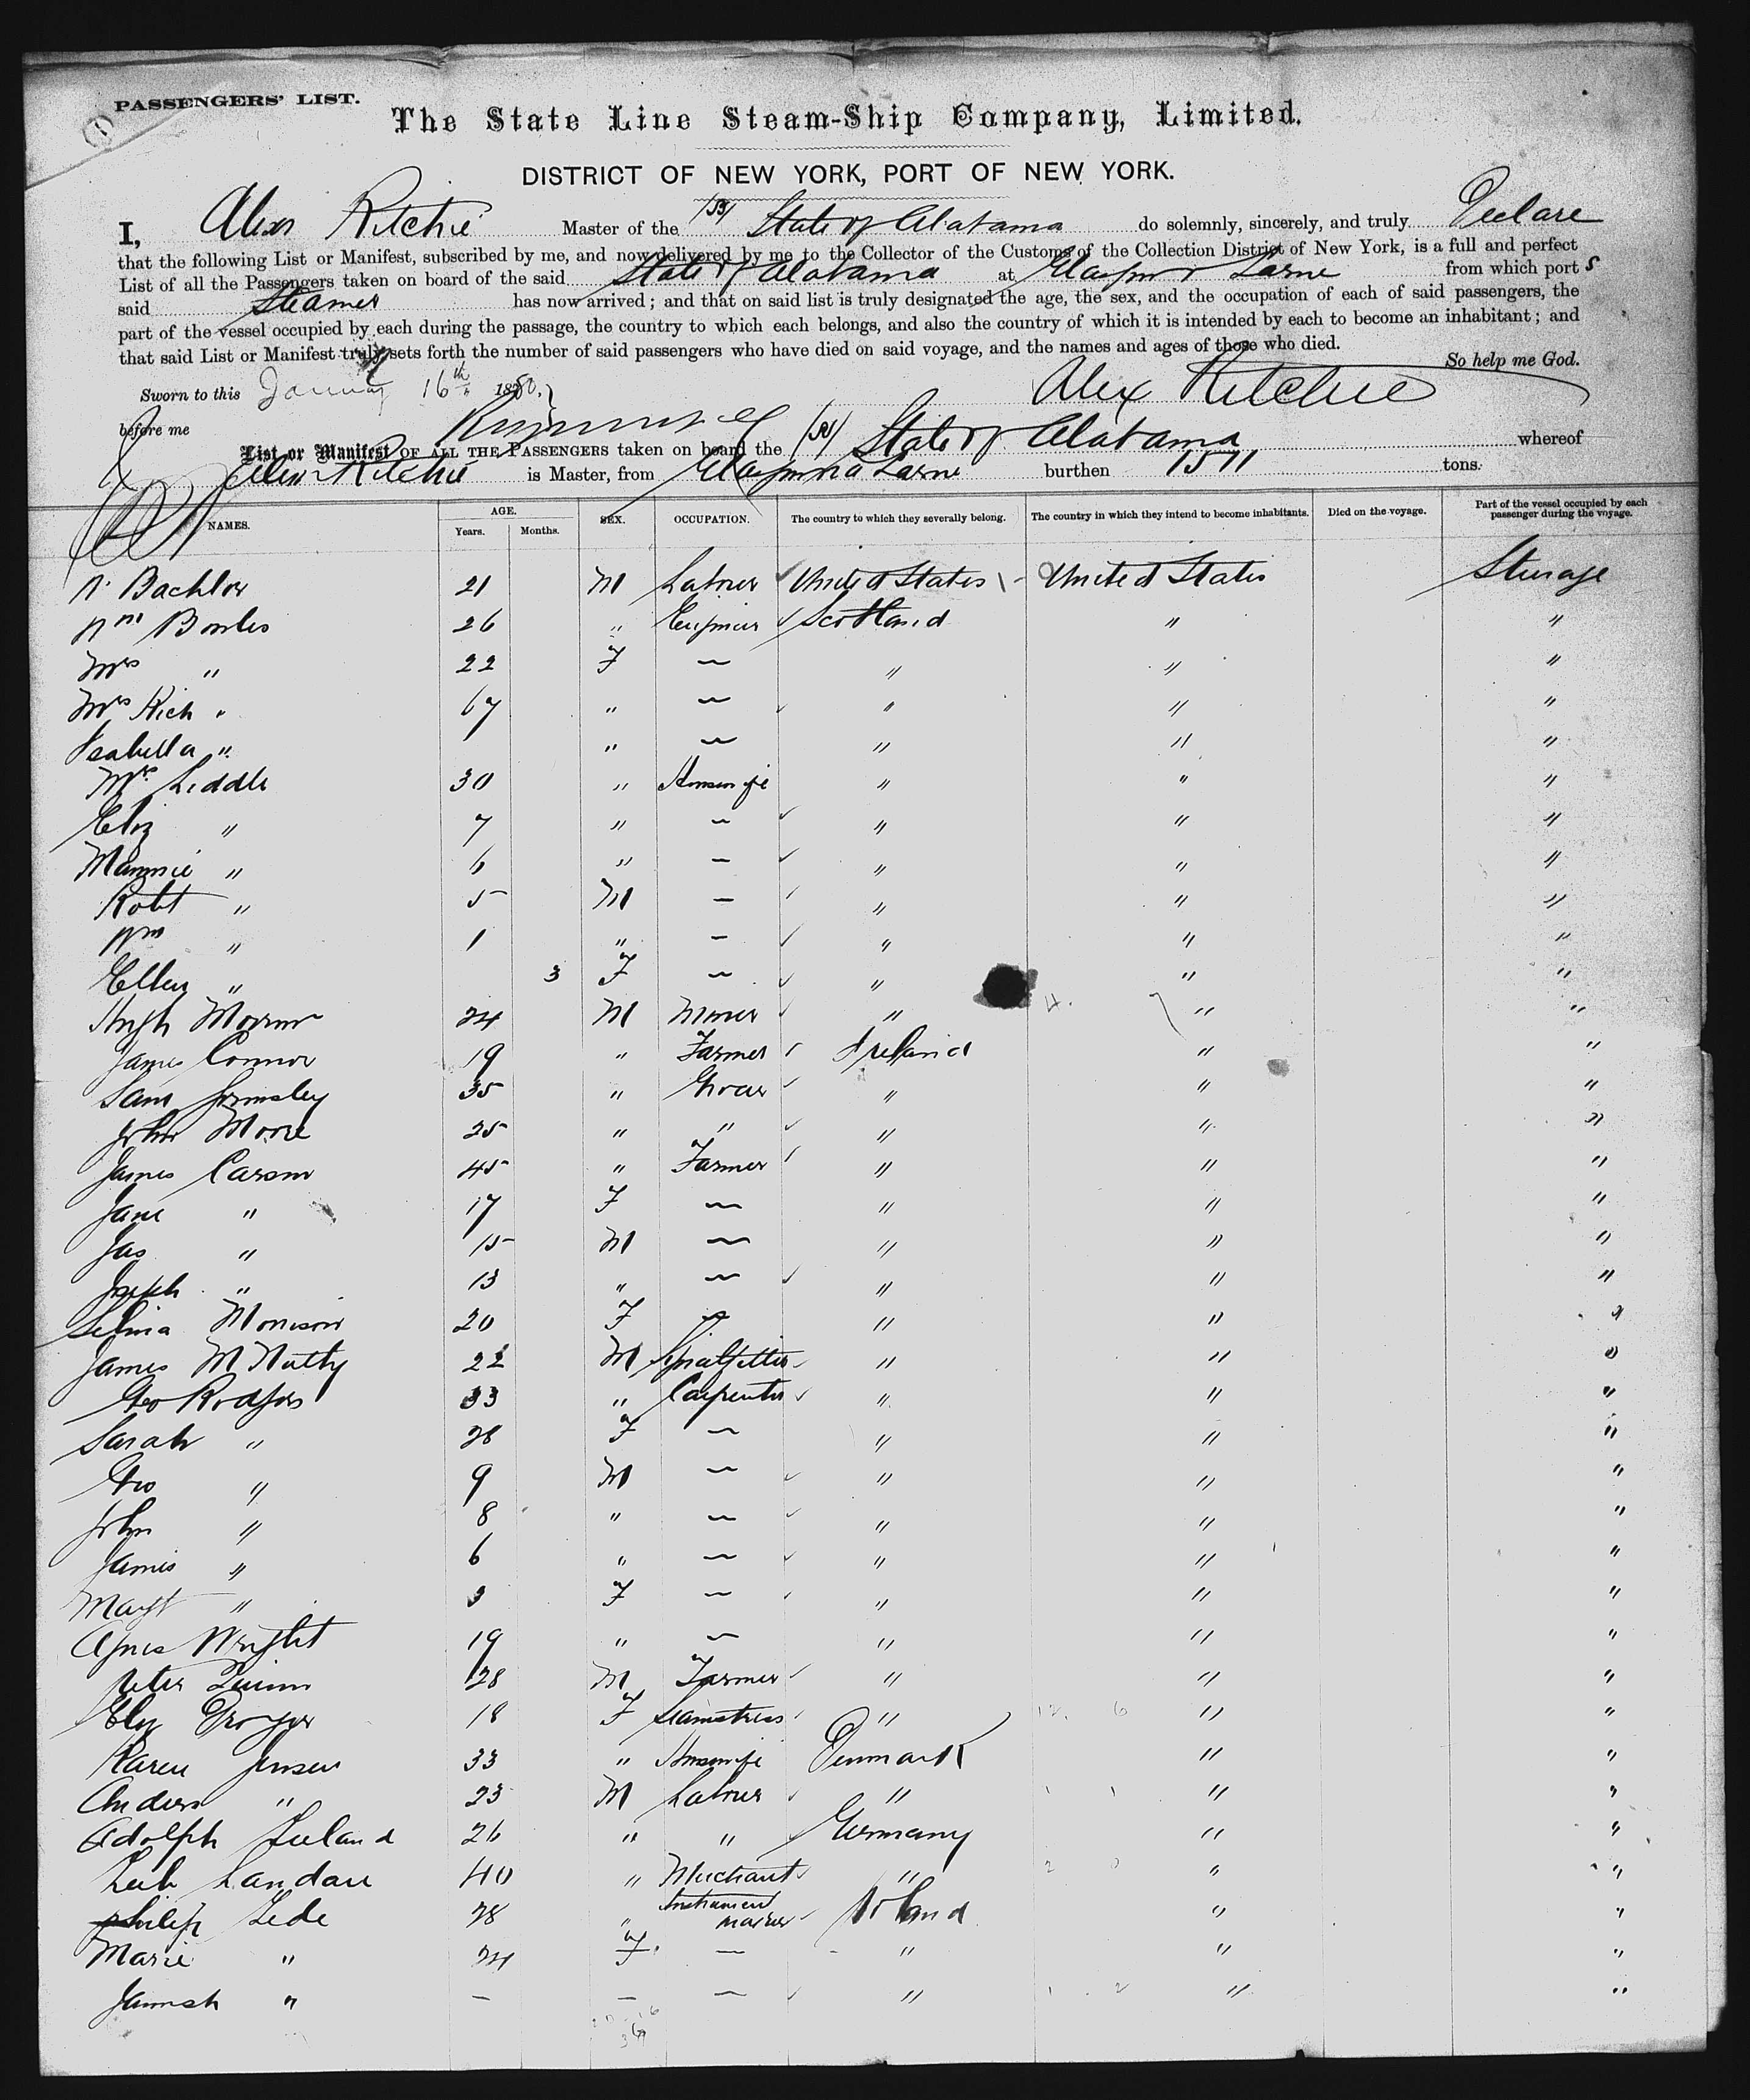 PASSENGERS' LIST.
(1)
The State Line Steam-Ship Company, Limited.
DISTRICT OF NEW YORK, PORT OF NEW YORK.
I, Alexr Ritchie Master of the (SS) State of Alabama do solemnly, sincerely, and truly Declare
that the following List or Manifest, subscribed by me, and now delivered by me to the Collector of the Customs of the Collection District of New York, is a full and perfect
List of all the Passengers taken on board of the said State of Alabama at Glasgow & Larne from which port s
said Steamer has now arrived; and that on said list is truly designated the age, the sex, and the occupation of each of said passengers, the
part of the vessel occupied by each during the passage, the country to which each belongs, and also the country of which it is intended by each to become an inhabitant; and
that said List or Manifest truly sets forth the number of said passengers who have died on said voyage, and the names and ages of those who died.
So help me God.
Sworn to this January 16th 1880.
Alex Ritchie
before me
List or Manifest OF ALL THE PASSENGERS taken on board the (SS) State of Alabama whereof
Alexr Ritchie is Master, from Glasgow & Larne burthen 1511 tons.
NAMES. AGE. Years. Months. SEX. OCCUPATION. The country to which they severally belong. The country in which they intend to become inhabitants. Died on the voyage. Part of the vessel occupied by each passenger during the voyage.
Bachlor 21 M Labourer United States United States Steerage
Wm Bowles 26 " Engineer Scotland " "
Mrs " 22 F — " " "
Mrs Rich " 67 " — " " "
Isabella " " — " " "
Mrs Liddle 30 " Housewife " " "
Eliz " 7 " — " " "
Mammie " 6 " — " " "
Robt " 5 M — " " "
Wm " 1 " — " " "
Ellen " 3 F — " " "
Hugh Morrow 24 M Miner " " "
James Connor 19 " Farmer Ireland " "
Sam Gormsley 35 " Grocer " " "
John Moore 25 " " " " "
James Carson 45 " Farmer " " "
Jane " 17 F — " " "
Jas " 15 M — " " "
Joseph " 13 " — " " "
Selina Morrison 20 F — " " "
James McNulty 22 M " " "
Geo Rodgers 33 " Carpenter " " "
Sarah " 28 F — " " "
Geo " 9 M — " " "
John " 8 " — " " "
James " 6 " — " " "
Magt " 3 F — " " "
Agnes Wright 19 " — " " "
Peter Quinn 28 M Farmer " " "
Eliz 18 F Seamstress " " "
Karen Jensen 33 " Housewife Denmark " "
Anders " 23 M Labourer " " "
Adolph 26 " " Germany " "
Leib Landau 40 " Merchant " " "
Philip Lede 28 " Instrument maker Poland " "
Marie " 24 F — " " "
" — — — " " "